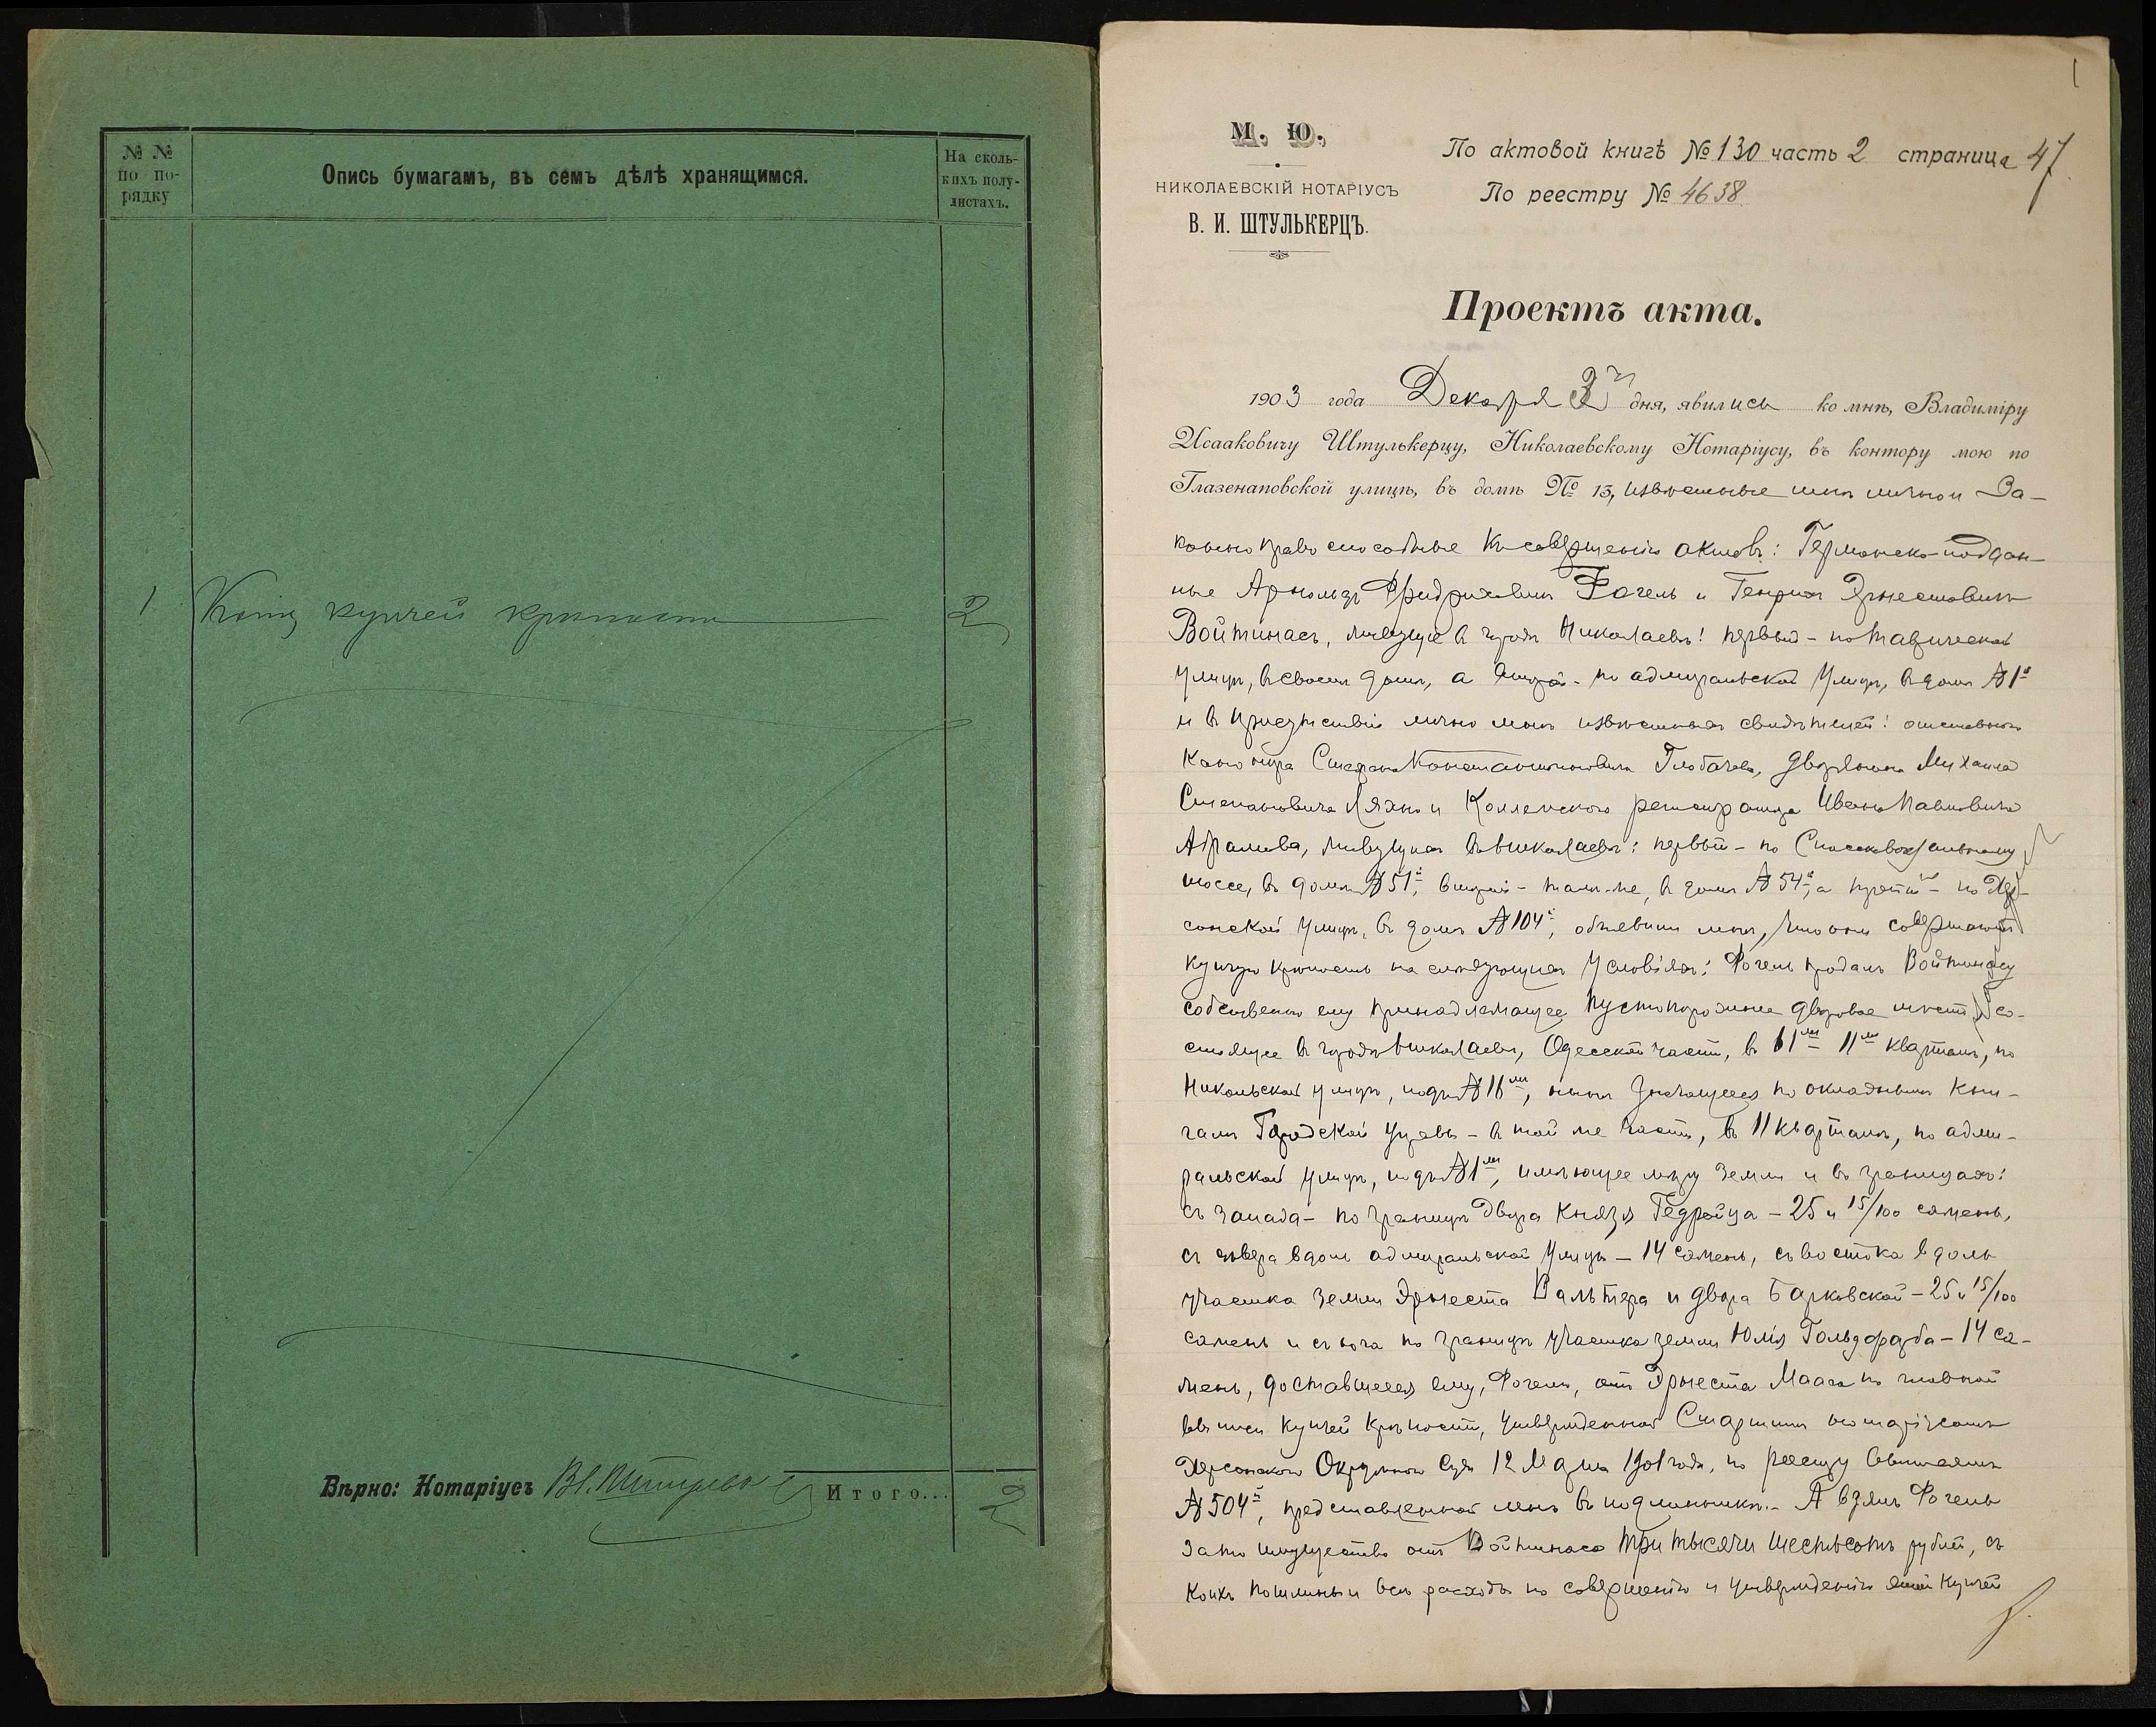 № №
по по-
рядку
Опись бумагамъ, въ семъ дѣлѣ хранящимся.
На сколь-
кихъ полу-
листахъ.
1 Копія купчей крѣпости 2
Вѣрно: Нотаріусъ
Итого... 2
1
М. Ю.
НИКОЛАЕВСКІЙ НОТАРІУСЪ
В. И. ШТУЛЬКЕРЦЪ.
По актовой книгѣ № 130 часть 2 страница 47
По реестру № 4638
Проектъ акта.
1903 года Декабря 3 дня, явились ко мнѣ, Владиміру
Исааковичу Штулькерцу, Николаевскому Нотаріусу, въ контору мою по
Глазенаповской улицѣ, въ домѣ № 13, извѣстные мнѣ лично и За-
конно правоспособные къ совершенію актовъ: Германско-поддан-
ные Арнольдъ Фридриховичъ Фогель и Генрихъ Эрнестовичъ
Войтинасъ, живущіе въ городѣ Николаевѣ: первый - по Таврической
улицѣ, въ своемъ домѣ, а второй - по адмиральской улицѣ, въ домѣ № 1й
и въ присутствіи лично мнѣ извѣстныхъ свидѣтелей: отставного
Степана Константиновича Глобачева, дворянина Михаила
Степановича Ляхно и Коллежскаго регистратора Ивана Павловича
Абрамова, живущихъ въ Николаевѣ: первый - по Спасскому
шоссе, въ домѣ № 51й, второй - тамъ-же, въ домѣ № 54й, а третій - по Хер-
сонской улицѣ, въ домѣ № 104й, объявили мнѣ, что они совершаютъ
купчую крѣпость на слѣдующихъ условіяхъ: Фогель продалъ Войтинасу
собственно ему принадлежащее пустопорожнее дворовое мѣсто, со-
стоящее въ городѣ Николаевѣ, Одесской части, въ 11мъ кварталѣ, по
Никольской улицѣ, подъ № 16мъ, нынѣ значущееся по окладнымъ кни-
гамъ Городской Управы - въ той же части, въ 11 кварталѣ, по адми-
ральской улицѣ, подъ № 1мъ, имѣющее мѣру земли и въ границахъ:
съ запада - по границѣ двора Князя Гедройца - 25 и 15/100 сажень,
съ сѣвера вдоль адмиральской улицы - 14 сажень, съ востока вдоль
участка земли Эрнеста Вальтера и двора Барковской - 25 и 15/100
сажень и съ юга по границѣ участка земли Юлія Гольдфарба - 14 са-
жень, доставшееся ему, Фогелю, отъ Эрнеста Мааса по главной
выписи купчей крѣпости, утвержденной Старшимъ нотаріусомъ
Херсонскаго Окружнаго Суда 12 Марта 1901 года, по реестру
№ 504й, представленной мнѣ въ подлинникѣ. - А взялъ Фогель
за то имущество отъ Войтинаса три тысячи шестьсотъ рублей, съ
коихъ пошлины и всѣ расходы по совершенію и утвержденію этой купчей